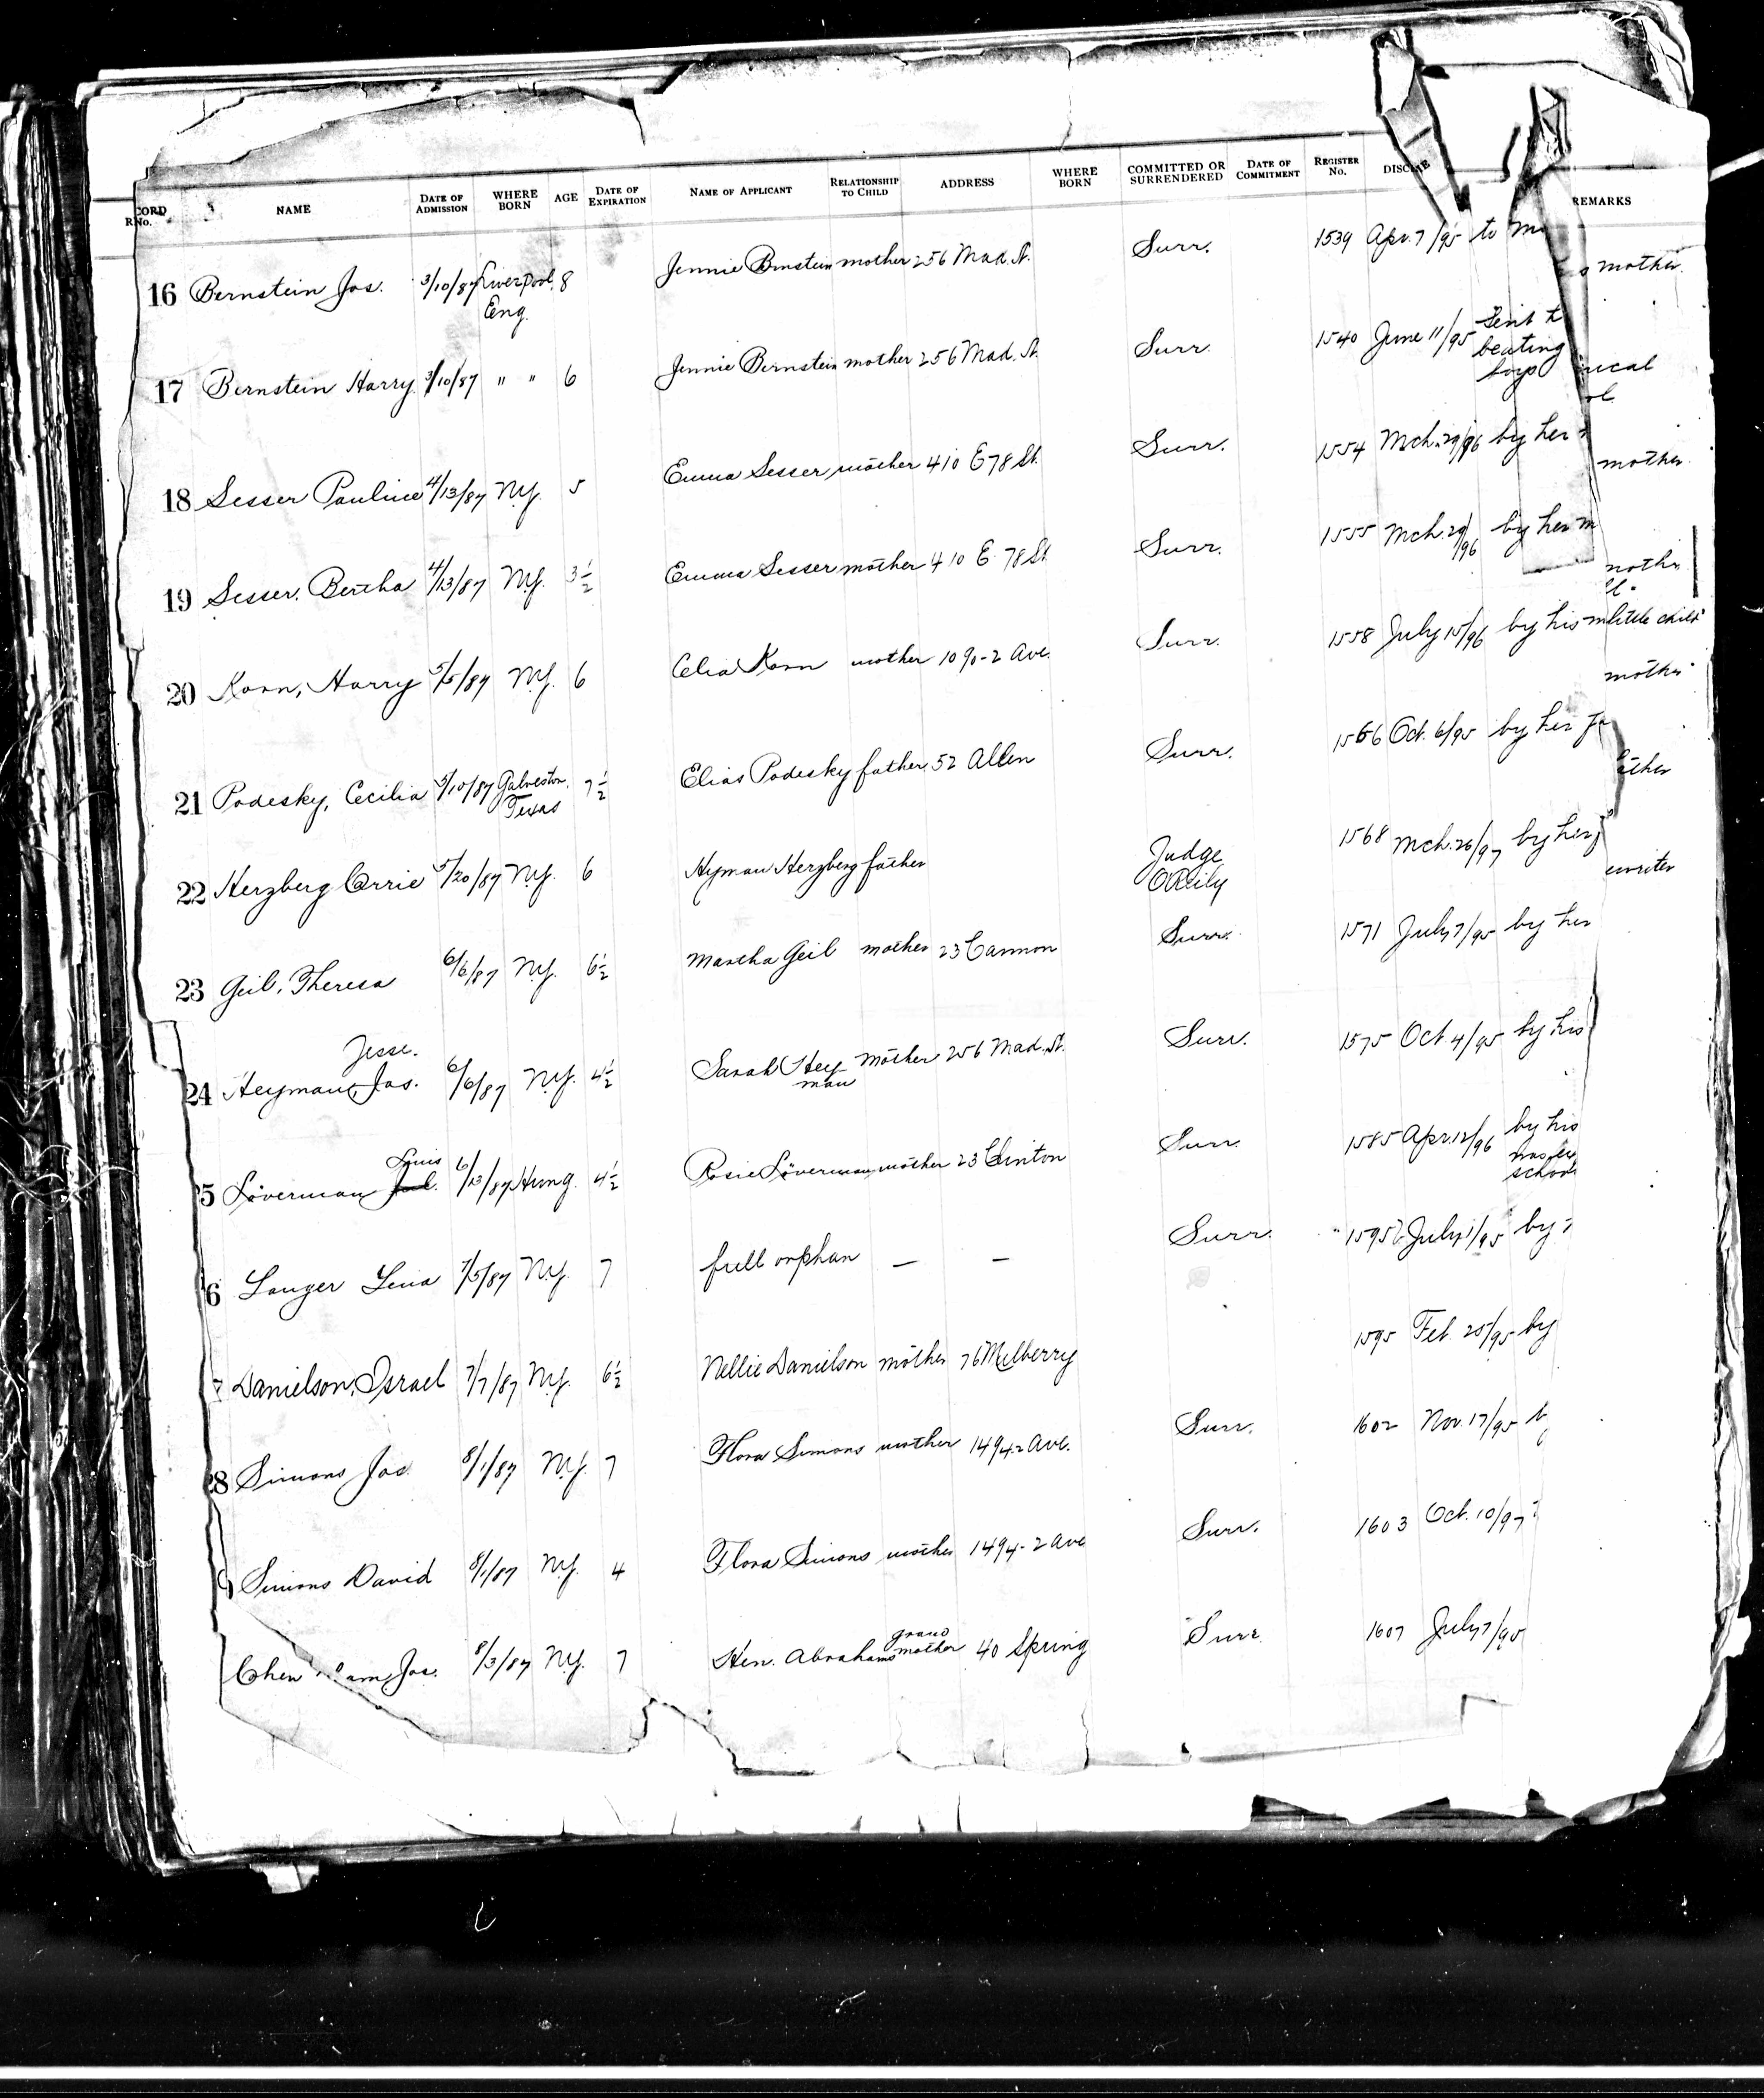 CORD R No. NAME DATE OF ADMISSION WHERE BORN AGE DATE OF EXPIRATION NAME OF APPLICANT RELATIONSHIP TO CHILD ADDRESS WHERE BORN COMMITTED OR SURRENDERED DATE OF COMMITMENT REGISTER No. REMARKS
16 Bernstein Jos. 3/10/87 Liverpool, Eng. 8 Jennie Bernstein mother 256 Mad. St. Surr. 1539 Apr. 7/95 to
mother.
17 Bernstein Harry 3/10/87 " " 6 Jennie Bernstein mother 256 Mad. St. Surr. 1540 June 11/95 Sent beating boys
18 Sesser Pauline 4/13/87 N.Y. 5 Emma Sesser mother 410 E 78 St. Surr. 1554 Mch. 29/96 by her
mother.
19 Sesser, Bertha 4/13/87 N.Y. 3½ Emma Sesser mother 410 E. 78 St. Surr. 1555 Mch. 29/96 by her m
20 Korn, Harry 5/5/87 N.Y. 6 Celia Korn mother 1090-2 Ave. Surr. 1558 July 15/96 by his m
little child
21 Podesky, Cecilia 5/10/87 Galveston, Texas 7½ Elias Podesky father 52 Allen Surr. 1566 Oct. 6/95 by her fa
22 Herzberg Carrie 5/20/87 N.Y. 6 Hyman Herzberg father Judge O'Reily 1568 Mch. 26/97 by her
23 Geib, Theresa 6/6/87 N.Y. 6½ Martha Geib mother 23 Cannon Surr. 1571 July 7/95 by her
24 Heyman, Jos. Jesse. 6/6/87 N.Y. 4½ Sarah Heyman mother 256 Mad. St. Surr. 1575 Oct 4/95 by his
5 Löverman Louis 6/13/87 Hung. 4½ Rosie Löverman mother 23 Clinton Surr. 1585 Apr. 12/96 by his
6 Langer Lena 7/5/87 N.Y. 7 full orphan — — Surr. July 1/95 by
7 Danielson, Israel 7/7/87 N.Y. 6½ Nellie Danielson mother 76 Mulberry 1595 Feb. 25/95 by
28 Simons Jos. 8/1/87 N.Y. 7 Flora Simons mother 1494-2 Ave. Surr. 1602 Nov. 17/95
9 Simons David 8/1/87 N.Y. 4 Flora Simons mother 1494-2 Ave Surr. 1603 Oct. 10/97
Cohen Jos. 8/3/87 N.Y. 7 Hen. Abrahams grand mother 40 Spring Surr. 1607 July 7/95